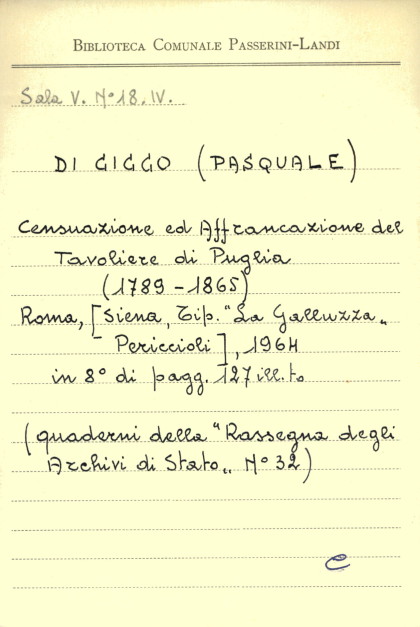 BIBLIOTECA COMUNALE PASSERINI-LANDI
Sala V. N° 18. IV.
DI CICCO (PASQUALE)
Censuazione ed Affrancazione del
Tavoliere di Puglia
(1789-1865)
Roma, [Siena, Tip. "La Galluzza„
- Periccioli], 1964
in 8° di pagg. 127 ill.to
(quaderni della "Rassegna degli
Archivi di Stato„ N° 32)
e